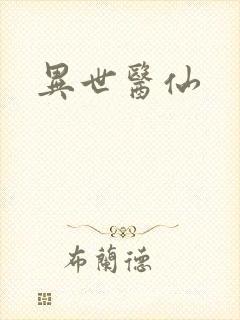 異世醫仙
布蘭德